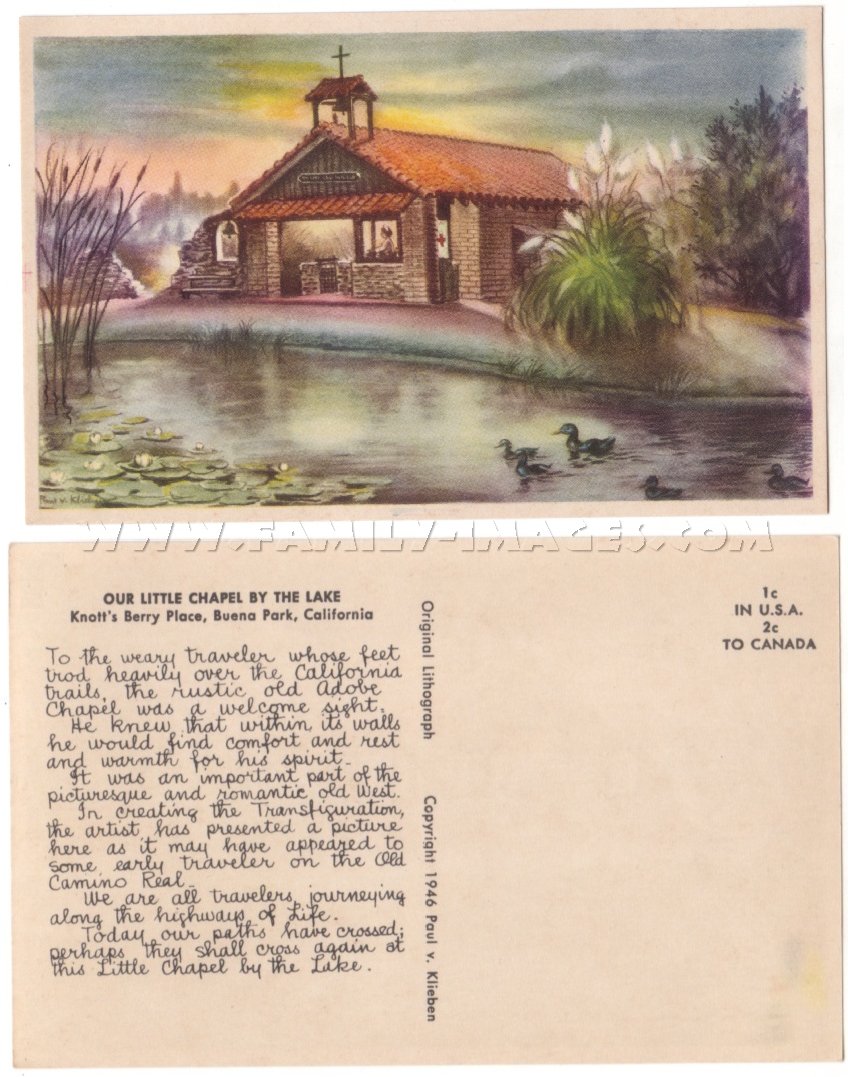 Paul v. Klieben
WWW.FAMILY-IMAGES.COM
OUR LITTLE CHAPEL BY THE LAKE
Knott's Berry Place, Buena Park, California
To the weary traveler whose feet
trod heavily over the California
trails, the rustic old Adobe
Chapel was a welcome sight.
He knew that within its walls
he would find comfort and rest
and warmth for his spirit.
It was an important part of the
picturesque and romantic old West.
In creating the Transfiguration,
the artist has presented a picture
here as it may have appeared to
some early traveler on the Old
Camino Real.
We are all travelers, journeying
along the highways of Life.
Today our paths have crossed;
perhaps they shall cross again at
this Little Chapel by the Lake.
Original Lithograph
Copyright 1946 Paul v. Klieben
1c
IN U.S.A.
2c
TO CANADA